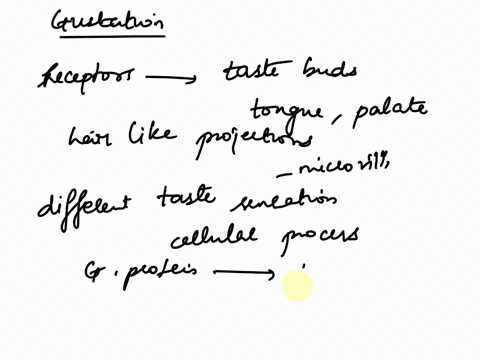 Gustation
Receptors → taste buds
tongue, palate
hair like projections
- microvilli
different taste sensation
cellular process
G. protein →